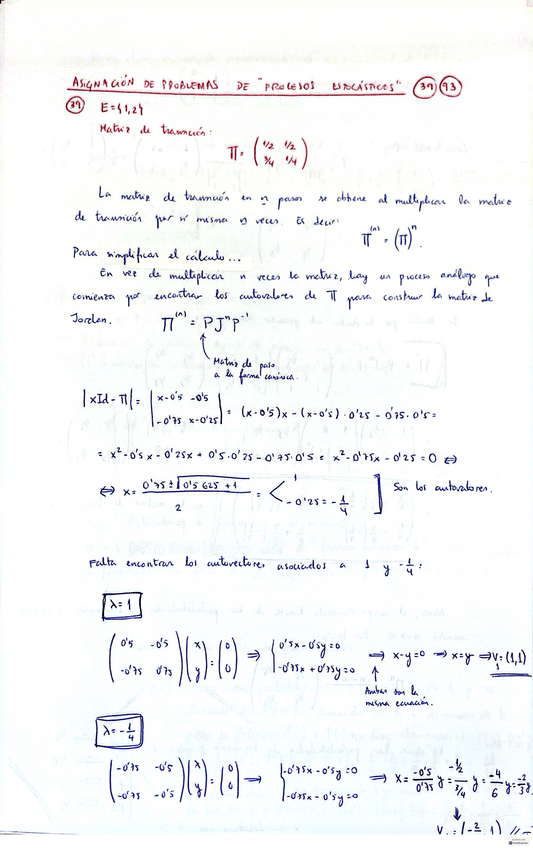 ASIGNACIÓN DE PROBLEMAS DE "PROCESOS ESTOCÁSTICOS" (39) (93)
(39) E={1,2}
Matriz de transición:
Π = ( 1/2 1/2
3/4 1/4 )
La matriz de transición en n pasos se obtiene al multiplicar la matriz
de transición por sí misma n veces. Es decir:
Π^(n) = (Π)^n.
Para simplificar el cálculo...
En vez de multiplicar n veces la matriz, hay un proceso análogo que
comienza por encontrar los autovalores de Π para construir la matriz de
Jordan. Π^(n) = P J^n P^-1
Matriz de paso
a la forma canónica.
|xId - Π| = | x-0'5 -0'5
-0'75 x-0'25 | = (x-0'5)x - (x-0'5)·0'25 - 0'75·0'5 =
= x² - 0'5x - 0'25x + 0'5·0'25 - 0'75·0'5 = x² - 0'75x - 0'25 = 0 ⇔
⇔ x = (0'75 ± √(0'5625 + 1)) / 2 = < 1
-0'25 = -1/4 ] Son los autovalores.
Falta encontrar los autovectores asociados a 1 y -1/4:
λ=1
( 0'5 -0'5
-0'75 0'75 ) ( x
y ) = ( 0
0 ) ⇒ { 0'5x - 0'5y = 0
-0'75x + 0'75y = 0 ⇒ x-y=0 → x=y ⇒ V₁=(1,1)
Ambas son la
misma ecuación.
λ=-1/4
( -0'75 -0'5
-0'75 -0'5 ) ( x
y ) = ( 0
0 ) → { -0'75x - 0'5y = 0
-0'75x - 0'5y = 0 ⇒ x = -0'5/0'75 y = -1/2 / 3/4 y = -4/6 y = -2/3 y